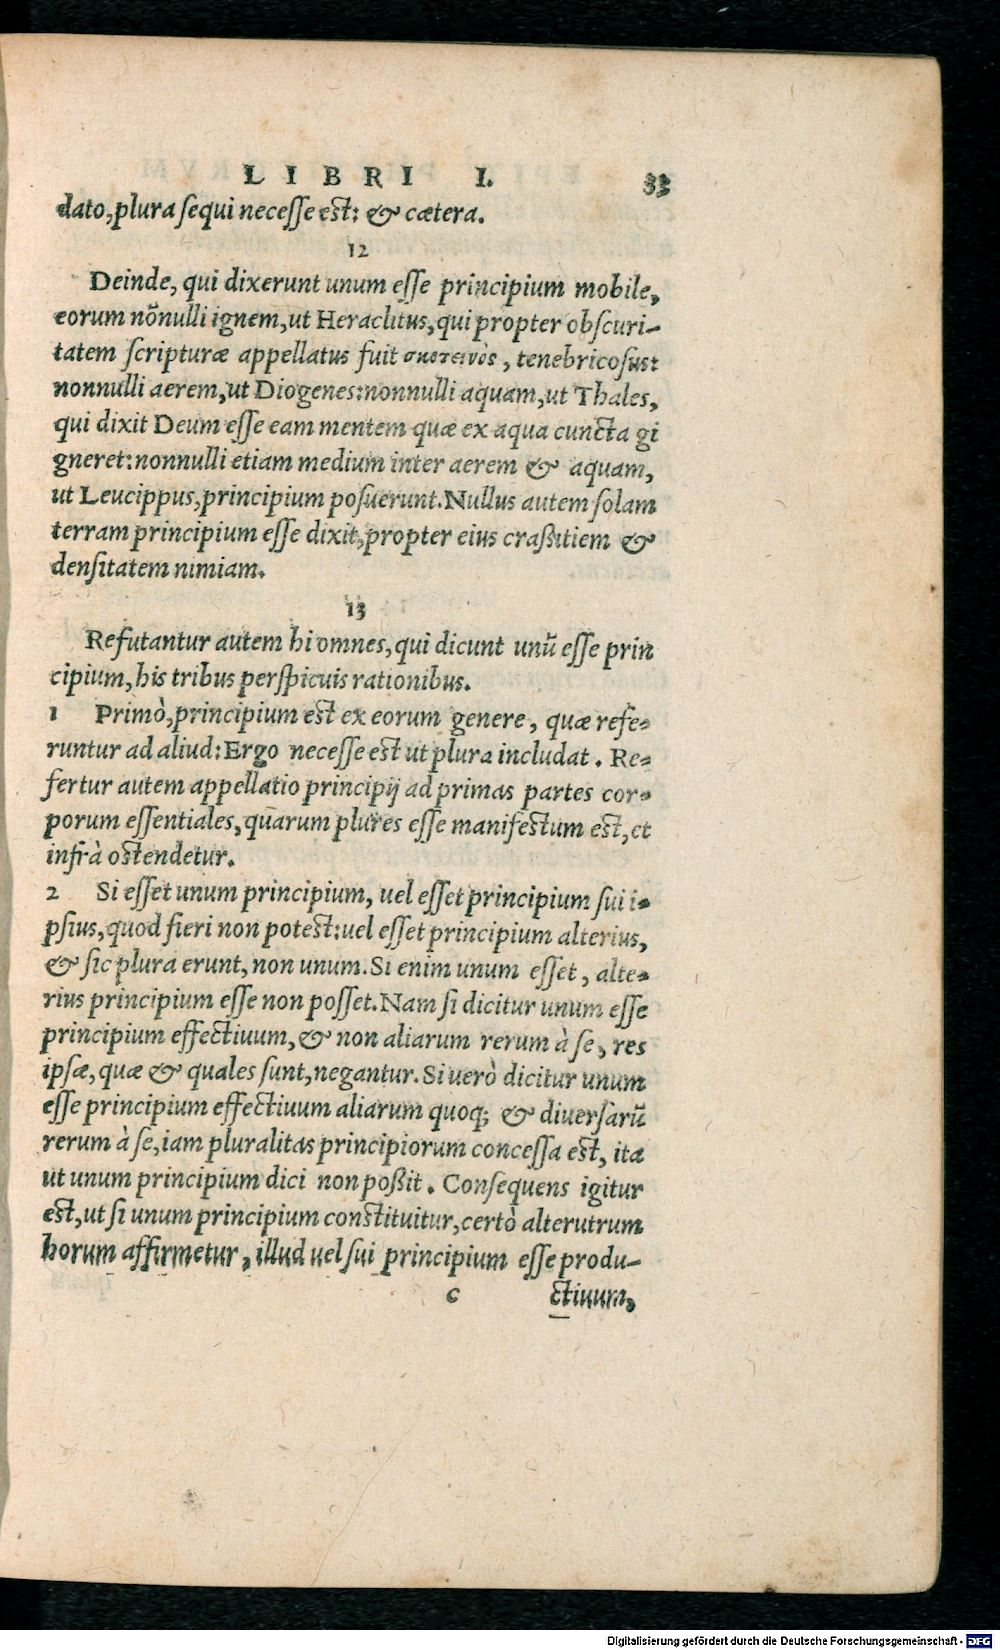 LIBRI I. 33
dato, plura sequi necesse est: & cætera.
12
Deinde, qui dixerunt unum esse principium mobile,
eorum nõnulli ignem, ut Heraclitus, qui propter obscuri-
tatem scripturæ appellatus fuit σκοτεινὸς, tenebricosus:
nonnulli aerem, ut Diogenes: nonnulli aquam, ut Thales,
qui dixit Deum esse eam mentem quæ ex aqua cuncta gi
gneret: nonnulli etiam medium inter aerem & aquam,
ut Leucippus, principium posuerunt. Nullus autem solam
terram principium esse dixit, propter eius craßitiem &
densitatem nimiam.
13
Refutantur autem hi omnes, qui dicunt unũ esse prin
cipium, his tribus perspicuis rationibus.
1 Primò, principium est ex eorum genere, quæ refe-
runtur ad aliud: Ergo necesse est ut plura includat. Re-
fertur autem appellatio principij ad primas partes cor-
porum essentiales, quarum plures esse manifestum est, et
infrà ostendetur.
2 Si esset unum principium, uel esset principium sui i-
psius, quod fieri non potest: uel esset principium alterius,
& sic plura erunt, non unum. Si enim unum esset, alte-
rius principium esse non posset. Nam si dicitur unum esse
principium effectiuum, & non aliarum rerum à se, res
ipsæ, quæ & quales sunt, negantur. Si uerò dicitur unum
esse principium effectiuum aliarum quoq; & diuersarũ
rerum à se, iam pluralitas principiorum concessa est, ita
ut unum principium dici non poßit. Consequens igitur
est, ut si unum principium constituitur, certò alterutrum
horum affirmetur, illud uel sui principium esse produ-
c ctiuum,
Digitalisierung gefördert durch die Deutsche Forschungsgemeinschaft - DFG